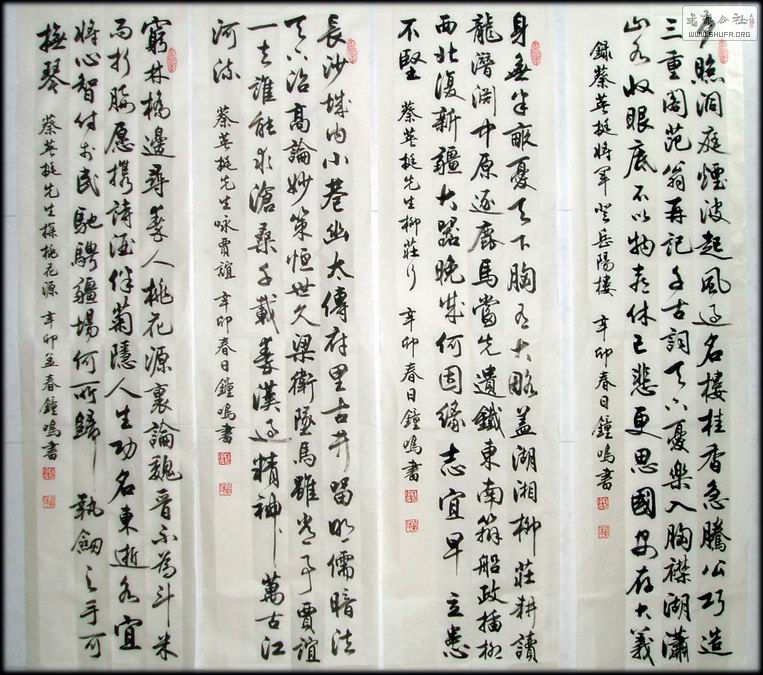 書法公社
WWW.SHUFA.ORG
夕照洞庭煙波起風過名樓桂香急騰公巧造
三重閣范翁再記千古詞天下憂樂入胸襟湖瀟
山水收眼底不以物喜休己悲更思國安存大義
錄蔡英挺將軍登岳陽樓 辛卯春日鐘鳴書
身無半畝憂天下胸有大略益湖湘柳莊耕讀
龍潛淵中原逐鹿馬當先遺鐵東南籌船政插柳
西北復新疆大器晚成何因緣志宜早立
不堅 蔡英挺先生柳莊行 辛卯春日鐘鳴書
長沙城內小巷幽太傅府里古井留明儒暗法
天下治高論妙策恒世久梁衛墜馬雖 賈誼
一去誰能求滄桑千載秦漢過精神萬古江
河流 蔡英挺先生詠賈誼 辛卯春日鐘鳴書
窮林橋邊尋秦人桃花源裏論魏晉不為斗米
而折腰愿攜詩酒伴菊隱人生功名東逝水宜
將心智付於民馳騁疆場何所歸執劍之手可
撫琴 蔡英挺先生探桃花源 辛卯孟春鐘鳴書